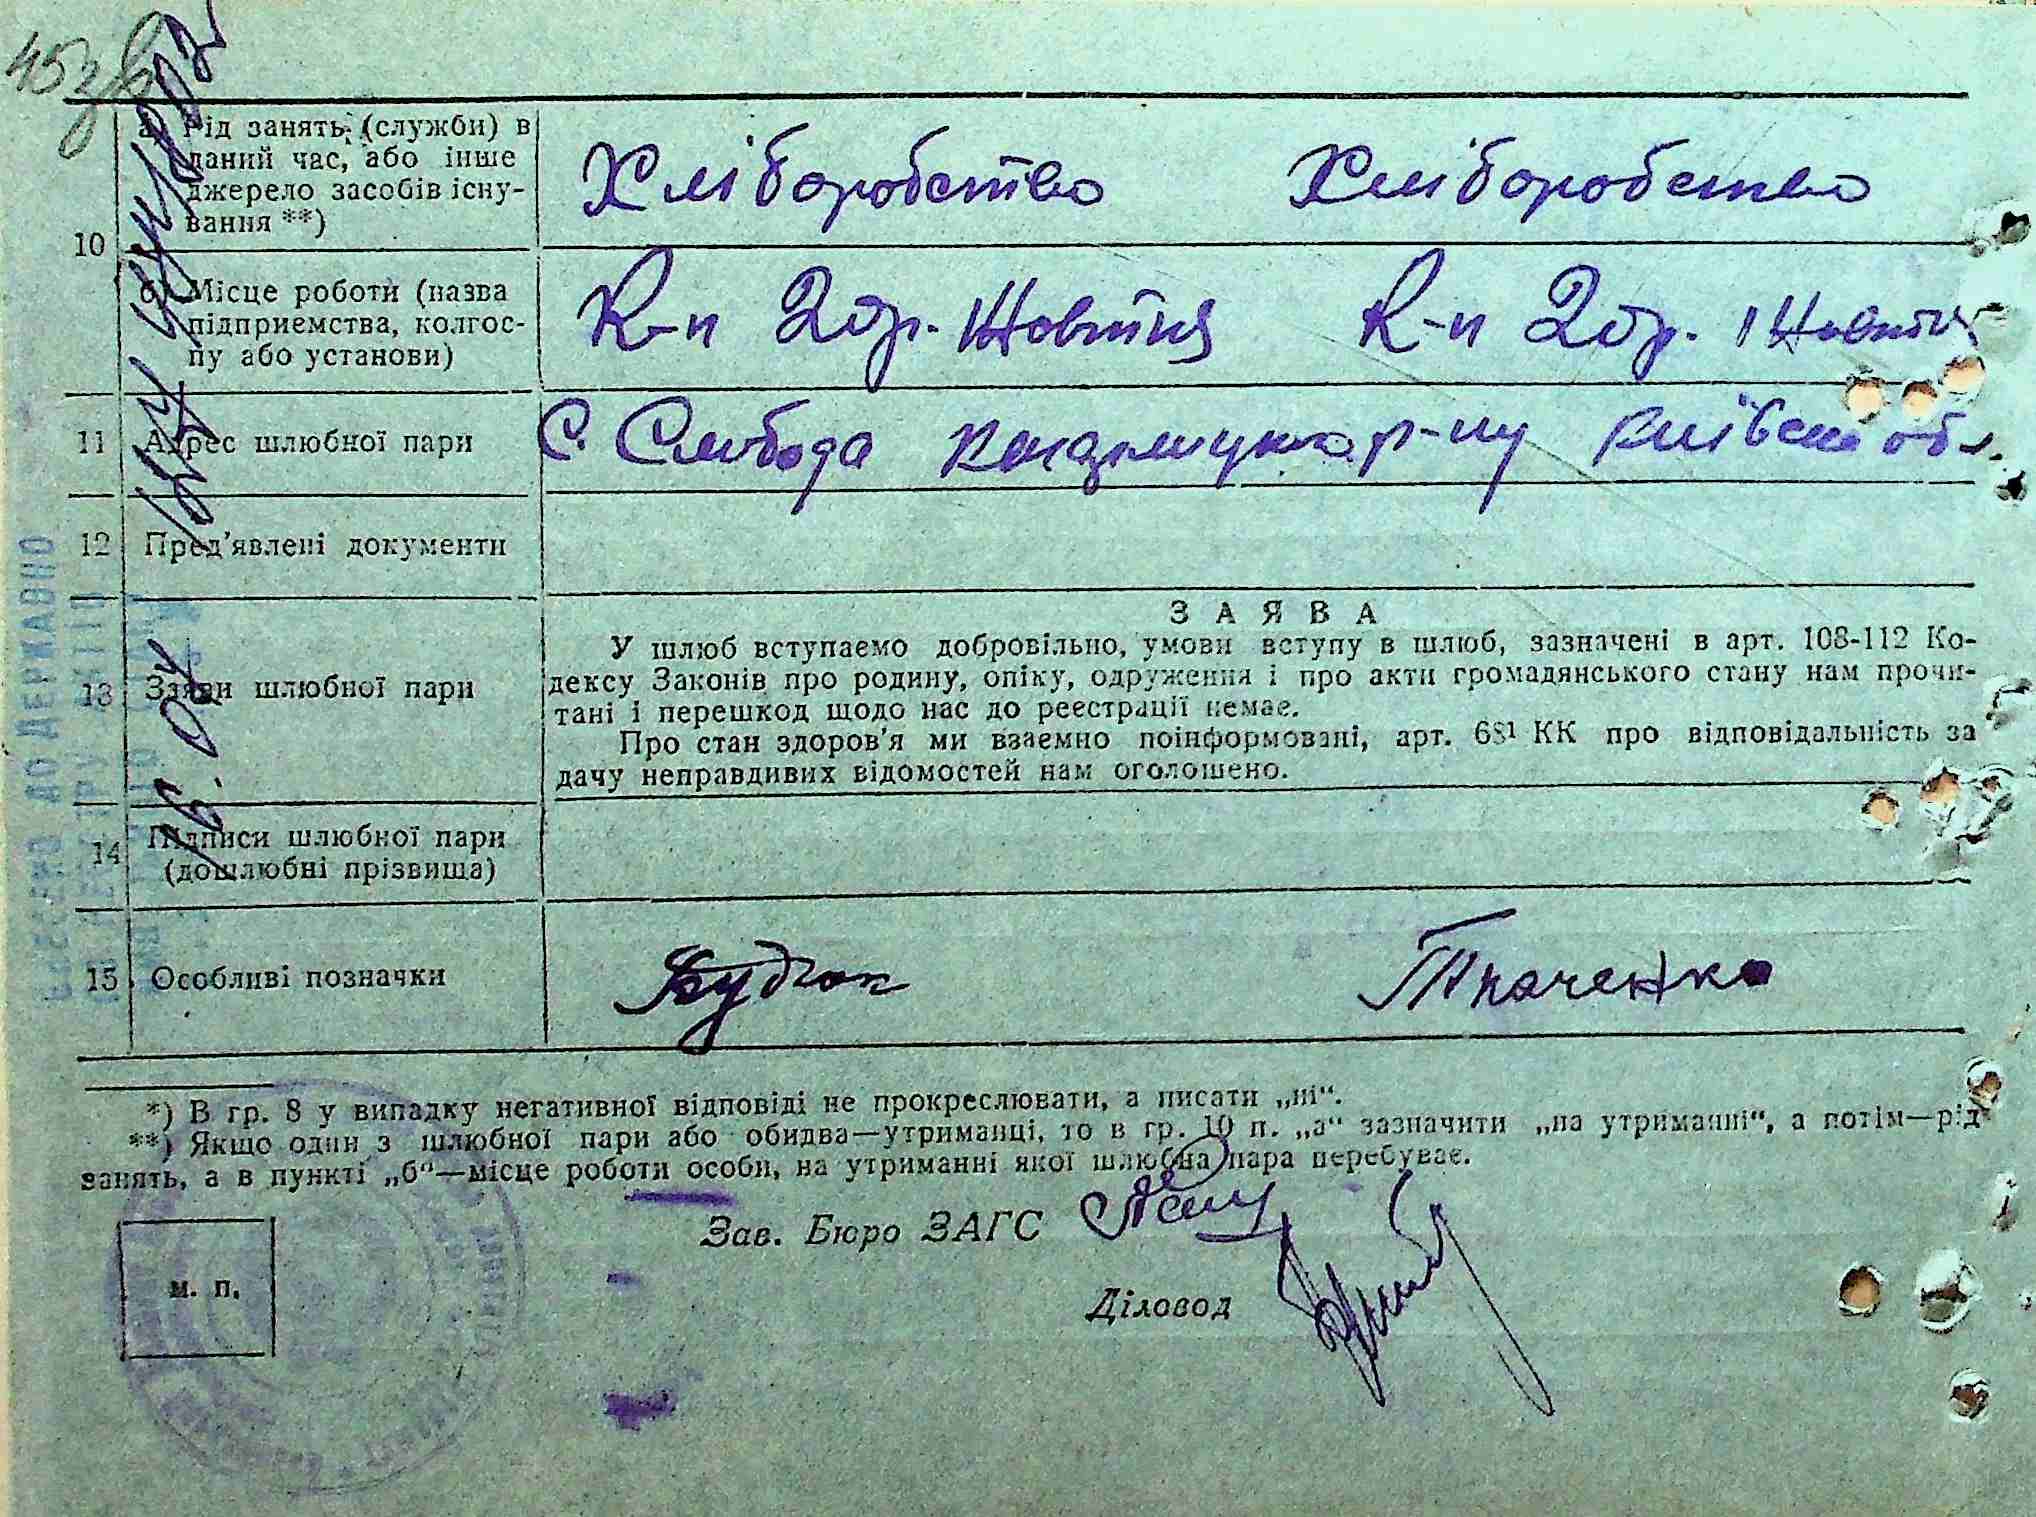 45 зв
а) Рід занять (служби) в
даний час, або інше
джерело засобів існу-
вання **)
Хліборобство Хліборобство
10
б) Місце роботи (назва
підприємства, колгос-
пу або установи)
К-п 2 бр. Жовтня К-п 2 бр. Жовтня
11 Адрес шлюбної пари
С. Слобода р-ну Київської обл.
12 Пред'явлені документи
13 Заяви шлюбної пари
ЗАЯВА
У шлюб вступаємо добровільно, умови вступу в шлюб, зазначені в арт. 108-112 Ко-
дексу Законів про родину, опіку, одруження і про акти громадянського стану нам прочи-
тані і перешкод щодо нас до реєстрації немає.
Про стан здоров'я ми взаємно поінформовані, арт. 68¹ КК про відповідальність за
дачу неправдивих відомостей нам оголошено.
14 Підписи шлюбної пари
(дошлюбні прізвища)
15 Особливі позначки
Ткаченко
*) В гр. 8 у випадку негативної відповіді не прокреслювати, а писати „ні“.
**) Якщо один з шлюбної пари або обидва—утриманці, то в гр. 10 п. „а“ зазначити „на утриманні“, а потім—рід
занять, а в пункті „б“—місце роботи особи, на утриманні якої шлюбна пара перебуває.
Зав. Бюро ЗАГС
м. п.
Діловод
ВНЕСЕНО ДО ДЕРЖАВНО